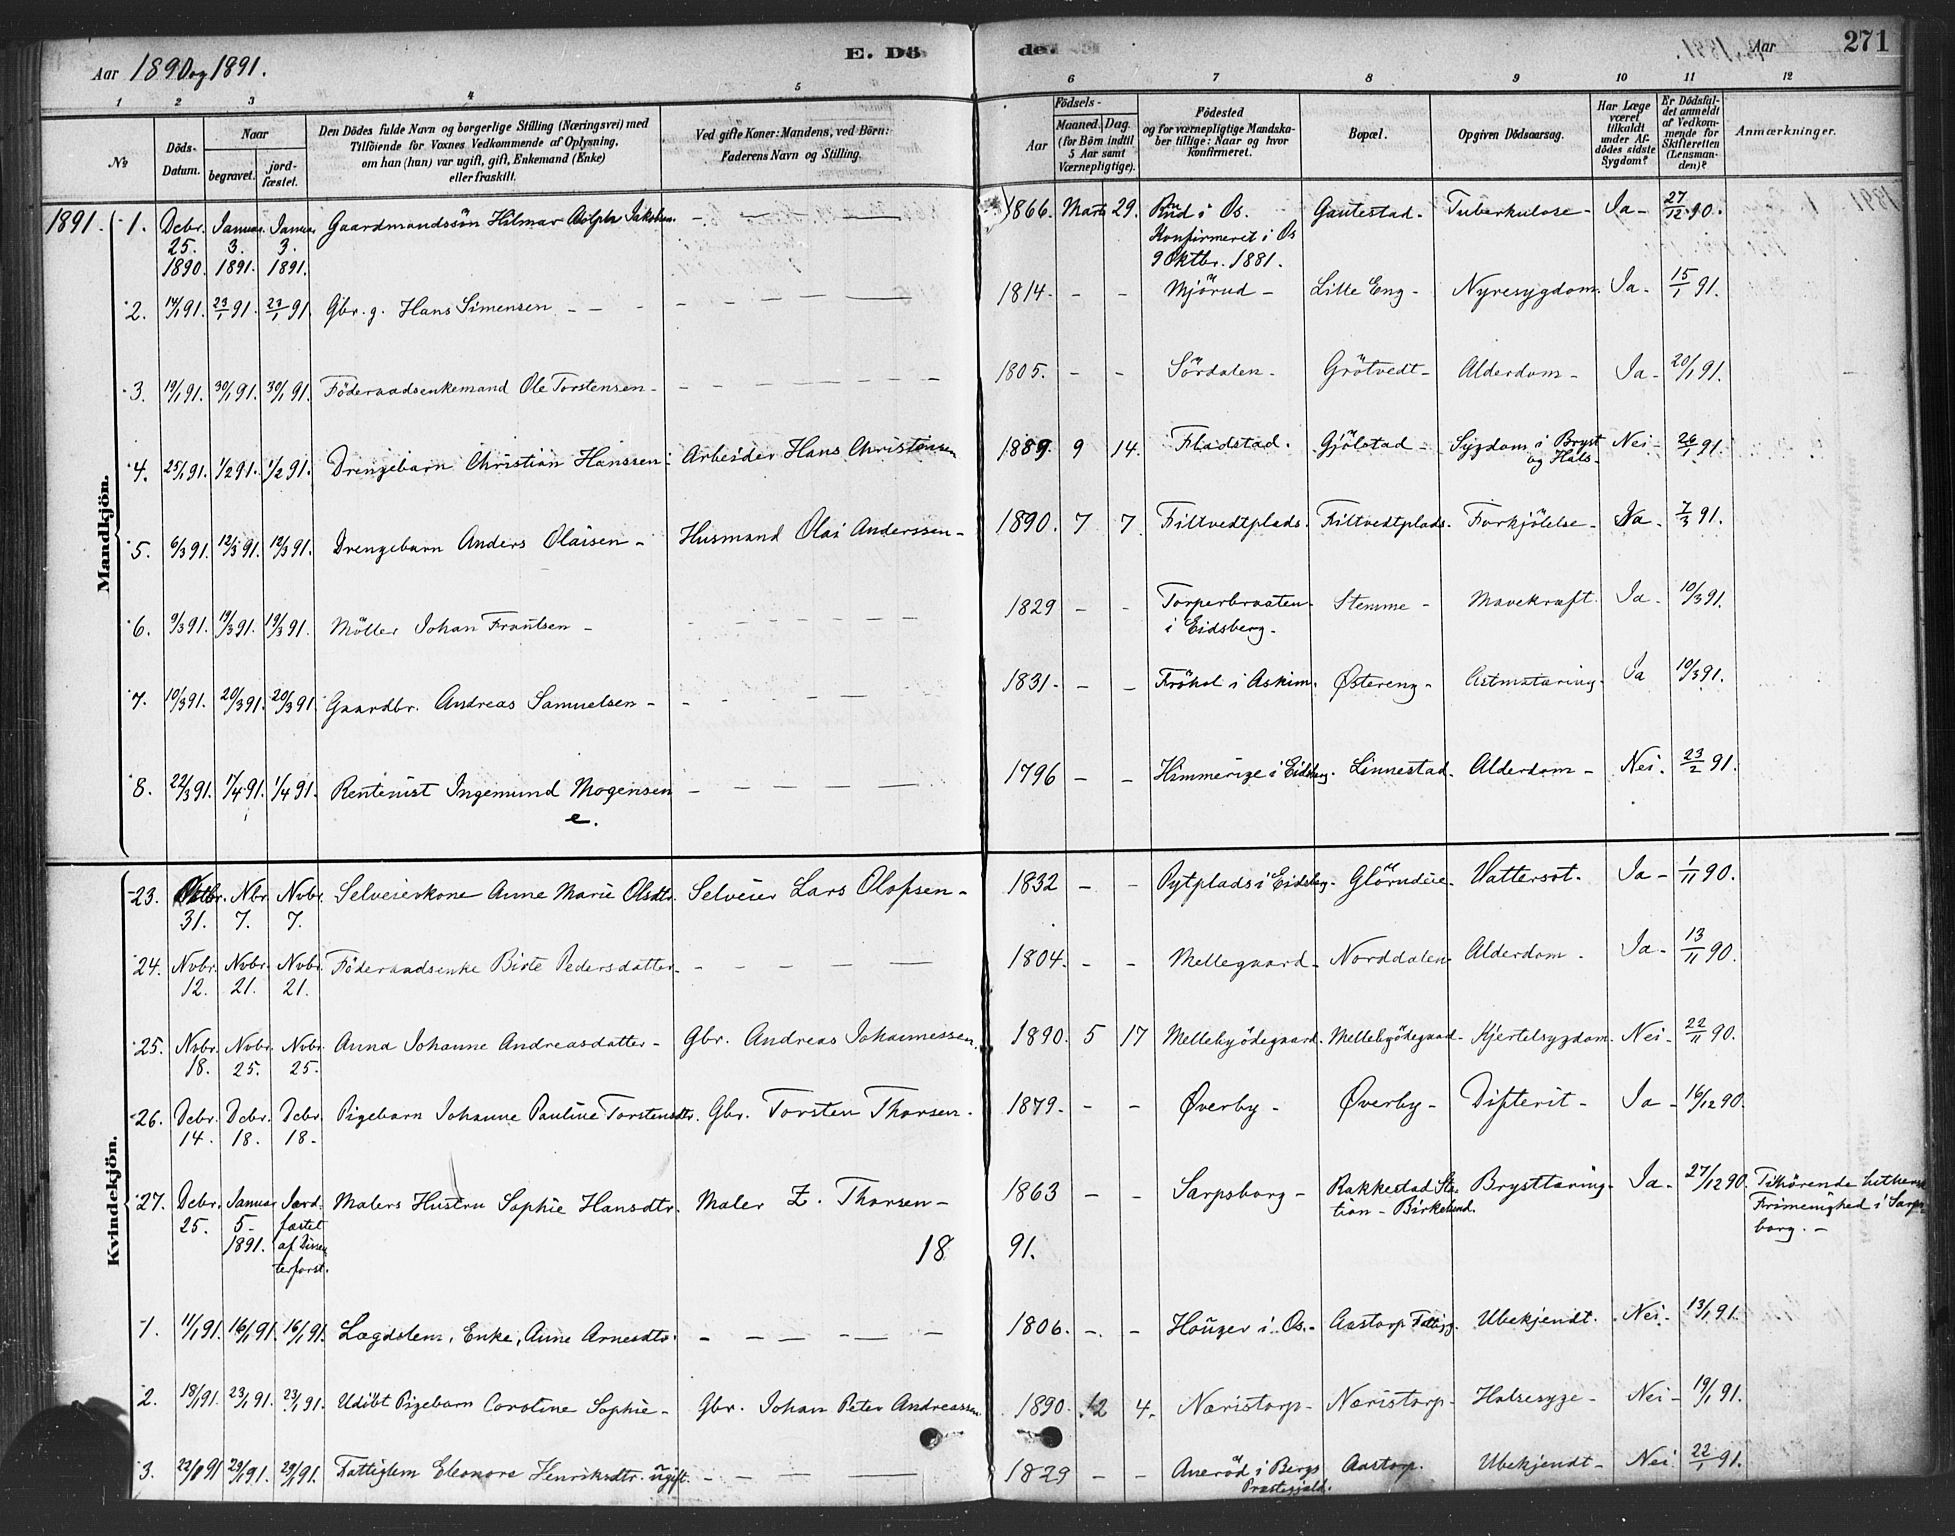 Aar 1890 og 1891.
E. Döde.
Aar
271
1 2 3 4 5 6 7 8 9 10 11 12
No
Döds-Datum.
Naar
begravet.
jordfæstet.
Den Dödes fulde Navn og borgerlige Stilling (Næringsvei) med
Tilföiende for Voxnes Vedkommende af Oplysning,
om han (hun) var ugift, gift, Enkemand (Enke)
eller fraskilt.
Ved gifte Koner: Mandens, ved Börn:
Faderens Navn og Stilling.
Födsels-
Aar
Maaned. Dag
(for Börn indtil
5 Aar samt
Værnepligtige).
Födested
og for værnepligtige Mandska-
ber tillige: Naar og hvor
konfirmeret.
Bopæl.
Opgiven Dödsaarsag.
Har Læge
været
tilkaldt
under Af-
dödes sidste
Sygdom?
Er Dödsfal-
det anmeldt
af Vedkom-
mende for
Skifteretten
(Lensman-
den)?
Anmærkninger.
Mandkjön.
1891. 1. Decbr. 25. 1890. Januar 3. 1891. Januar 3. 1891. Gaardmandssön Hilmar Adolph Jakobsen. 1866. Marts 29. Rud i Os. Konfirmeret i Os 9 Oktbr. 1881. Gautestad - Tuberkulose - Ja - 27/12 90.
2. 14/1 91. 23/1 91. 23/1 91. Gbr. g. Hans Simensen - 1814. - - Mjörud - Lille Eng - Nyresygdom. Ja - 15/1 91.
3. 19/1 91. 30/1 91. 30/1 91. Föderaadsenkemand Ole Torstensen - 1805. - - Sördalen - Grötvedt - Alderdom - Ja - 20/1 91.
4. 25/1 91. 1/2 91. 1/2 91. Drengebarn Christian Hanssen. Arbeider Hans Christensen 1889. 9 14. Fladstad. Gjölstad - Sygdom i Bryst og Hals - Nei - 26/1 91.
5. 6/3 91. 12/3 91. 12/3 91. Drengebarn Anders Olaisen - Husmand Olai Anderssen - 1890. 7 7. Filtvedtplads. Filtvedtplads. Forkjölelse - Ja - 7/3 91.
6. 9/3 91. 19/3 91. 19/3 91. Möller Johan Frantsen - 1829 - - Torperbraaten i Eidsberg - Stemme - Mavekræft. Ja - 10/3 91.
7. 10/3 91. 20/3 91. 20/3 91. Gaardbr. Andreas Samuelsen - 1831 - - Frökol i Askim. Østereng - Astmatæring. Ja 10/3 91.
8. 22/3 91. 1/4 91. 1/4 91. Rentenist Ingemund Mogensen e. 1796 - - Himmerige i Eidsberg. Linnestad. Alderdom - Nei. 23/2 91.
Kvindekjön.
23. Oktbr. 31. Nbr. 7. Nvbr. 7. Selveierkone Anne Marie Olsdtr. Selveier Lars Olofsen - 1832 - - Pytplads i Eidsberg. Glörudeie - Vattersot. Ja - 1/11 90.
24. Nvbr. 12. Nvbr. 21. Nvbr. 21. Föderaadsenke Birte Pedersdatter - 1804. - - Mellegaard - Norddalen - Alderdom - Ja - 13/11 90.
25. Nvbr. 18. Nvbr. 25. Nvbr. 25. Anna Johanne Andreasdatter - Gbr. Andreas Johannessen. 1890. 5 17 Mellebyödegaard. Mellebyödegaard - Kjertelsygdom. Nei - 22/11 90.
26. Dcbr. 14. Dcbr. 18. Dcbr. 18. Pigebarn Johanne Pauline Torstensdtr. Gbr. Torsten Thorsen. 1879. - - Øverby - Øverby - Difterit - Ja - 16/12 90.
27. Dcbr. 25. Januar 5 - 1891. Jordfæstet af Dissenterforst. Malers Hustru Sophie Hansdtr. Maler Z. Thorsen - 1863 - - Sarpsborg - Rakkestad Station - Birkelund. Brysttæring - Ja - 27/12 90. Tilhörende luthersk Frimenighed i Sarpsborg. -
1891.
1. 11/1 91. 16/1 91. 16/1 91. Lægdslem, Enke, Anne Arnesdtr. 1806. - - Houger i Os. - Aastorp Fattigg. Ubekjendt. Nei - 13/1 91.
2. 18/1 91. 23/1 91. 23/1 91. Udöbt Pigebarn Caroline Sophie - Gbr. Johan Peter Andreassen. 1890. 12 4. Næristorp - Næristorp - Halsesyge - Nei - 19/1 91.
3. 22/1 91 29/1 91. 29/1 91. Fattiglem Eleonore Henriksdtr. ugift. 1829 - - Aneröd i Bergs Præstegjeld. Aastorp. Ubekjendt - Nei. 22/1 91.